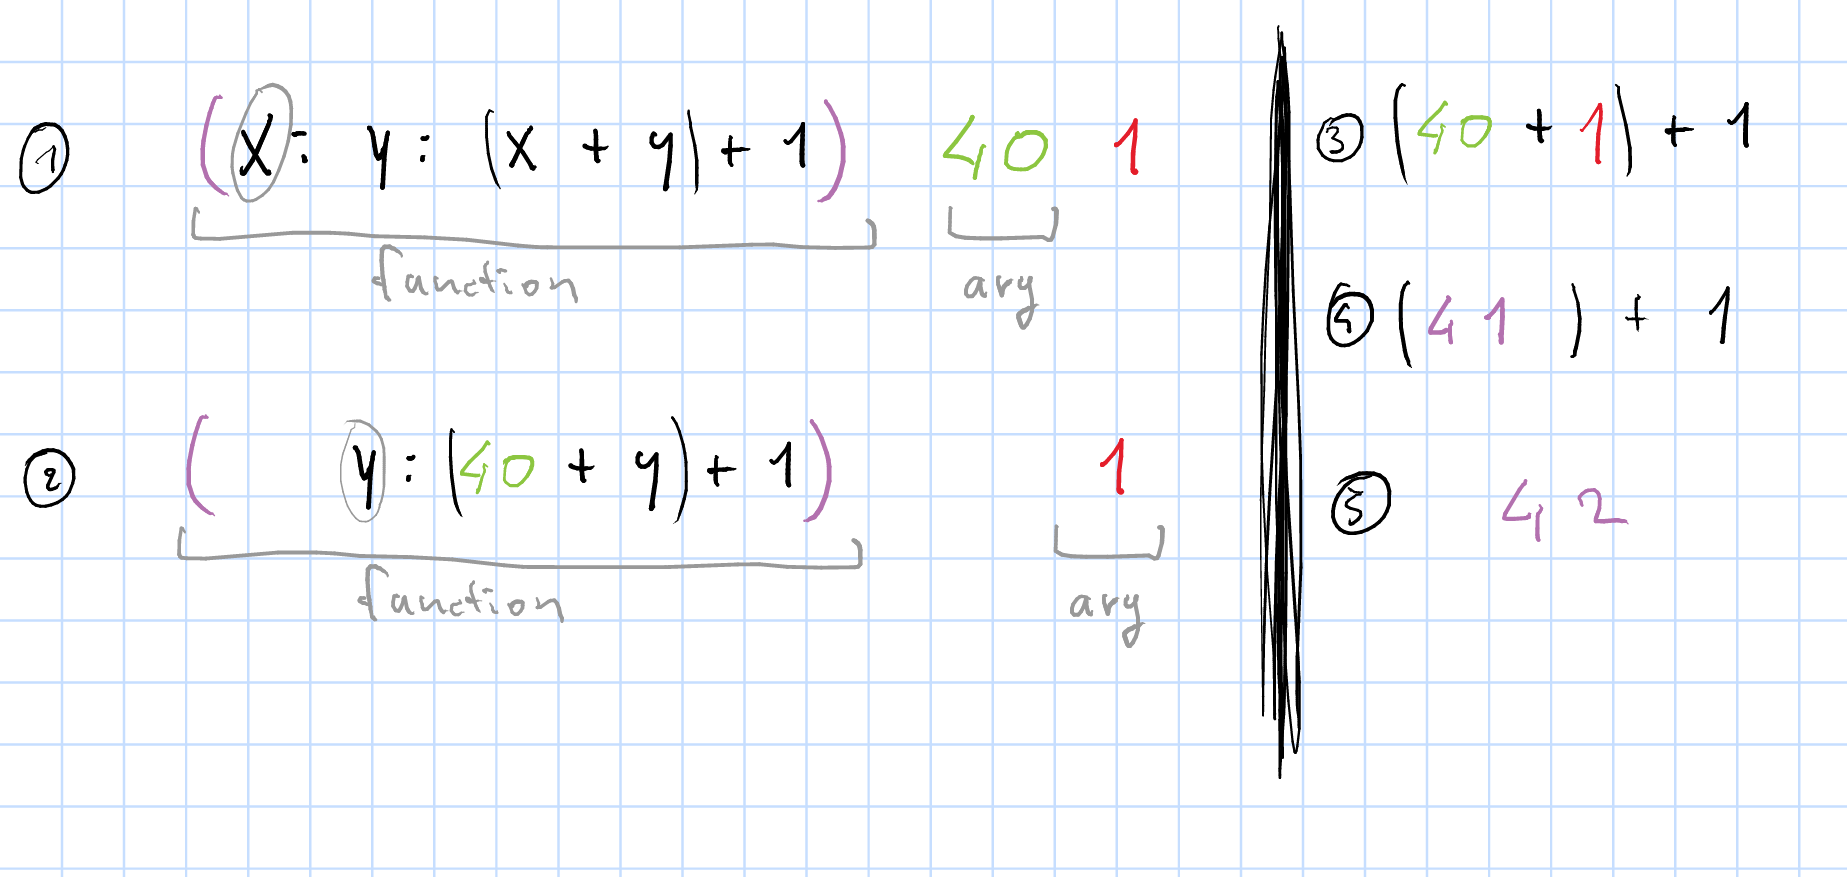 ① (x: y: (x + y) + 1) 40 1
function arg
② ( y: (40 + y) + 1) 1
function arg
③ (40 + 1) + 1
④ (41) + 1
⑤ 42